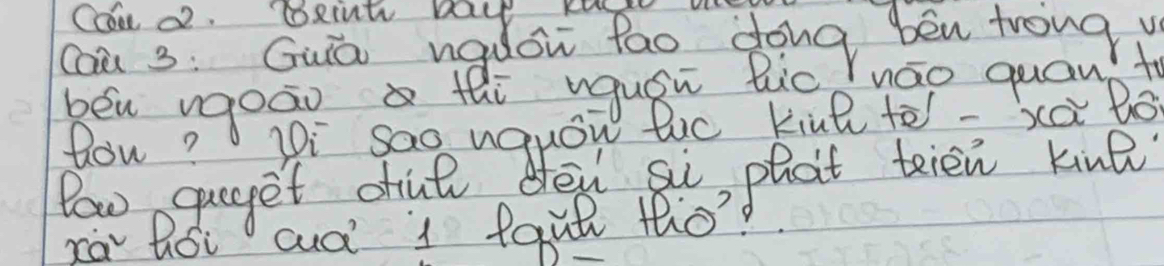 Câu 2. Trình bày
Câu 3: Giữa nguồn lao động bên trong và
bên ngoài thì nguồn lực nào quan tr
hơn? Vì sao nguồn lực kinh tế - xã hội
lại quyết định đến sự phát triển kinh
xã hội của 1 lãnh thổ?